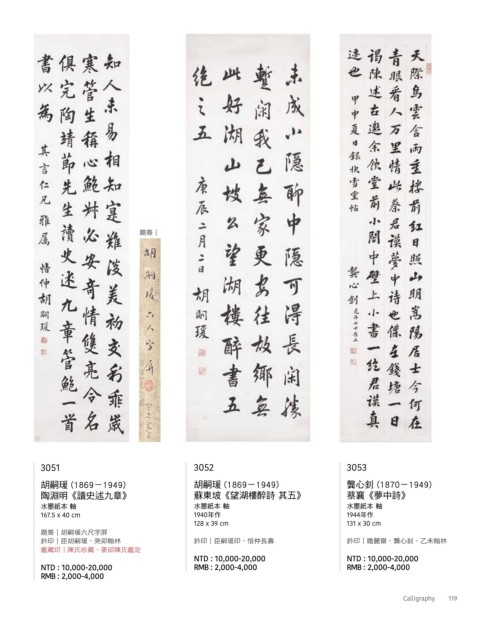 知人未易相知寔難淡美初交利乖歲
寒管生稱心鮑叔必安奇情雙亮令名
俱完陶靖節先生讀史述九章管鮑一首
書以為
其言仁兄雅屬 愔仲胡嗣瑗
題簽｜
胡嗣瑗六尺字屏
未成小隱聊中隱可得長閑勝
暫閑我已無家更安往故鄉無
此好湖山坡公望湖樓醉書五
絕之五 庚辰二月二日 胡嗣瑗
天際烏雲含雨重樓前紅日照山明嵩陽居士今何在
青眼看人万里情此蔡君謨夢中詩也僕在錢塘一日
謁陳述古邀余飲堂前小閣中壁上小書一絕君謨真
迹也 甲申夏日錄快雪堂帖 龔心釗 是年七十有五
3051
胡嗣瑗（1869－1949）
陶淵明《讀史述九章》
水墨紙本 軸
167.5 x 40 cm
題簽｜胡嗣瑗六尺字屏
鈐印｜臣胡嗣瑗、癸卯翰林
鑑藏印｜陳氏珍藏、篆邱陳氏鑑定
NTD : 10,000-20,000
RMB : 2,000-4,000
3052
胡嗣瑗（1869－1949）
蘇東坡《望湖樓醉詩 其五》
水墨紙本 軸
1940年作
128 x 39 cm
鈐印｜臣嗣瑗印、愔仲長壽
NTD : 10,000-20,000
RMB : 2,000-4,000
3053
龔心釗（1870－1949）
蔡襄《夢中詩》
水墨紙本 軸
1944年作
131 x 30 cm
鈐印｜瞻麓齋、龔心釗、乙未翰林
NTD : 10,000-20,000
RMB : 2,000-4,000
Calligraphy 119